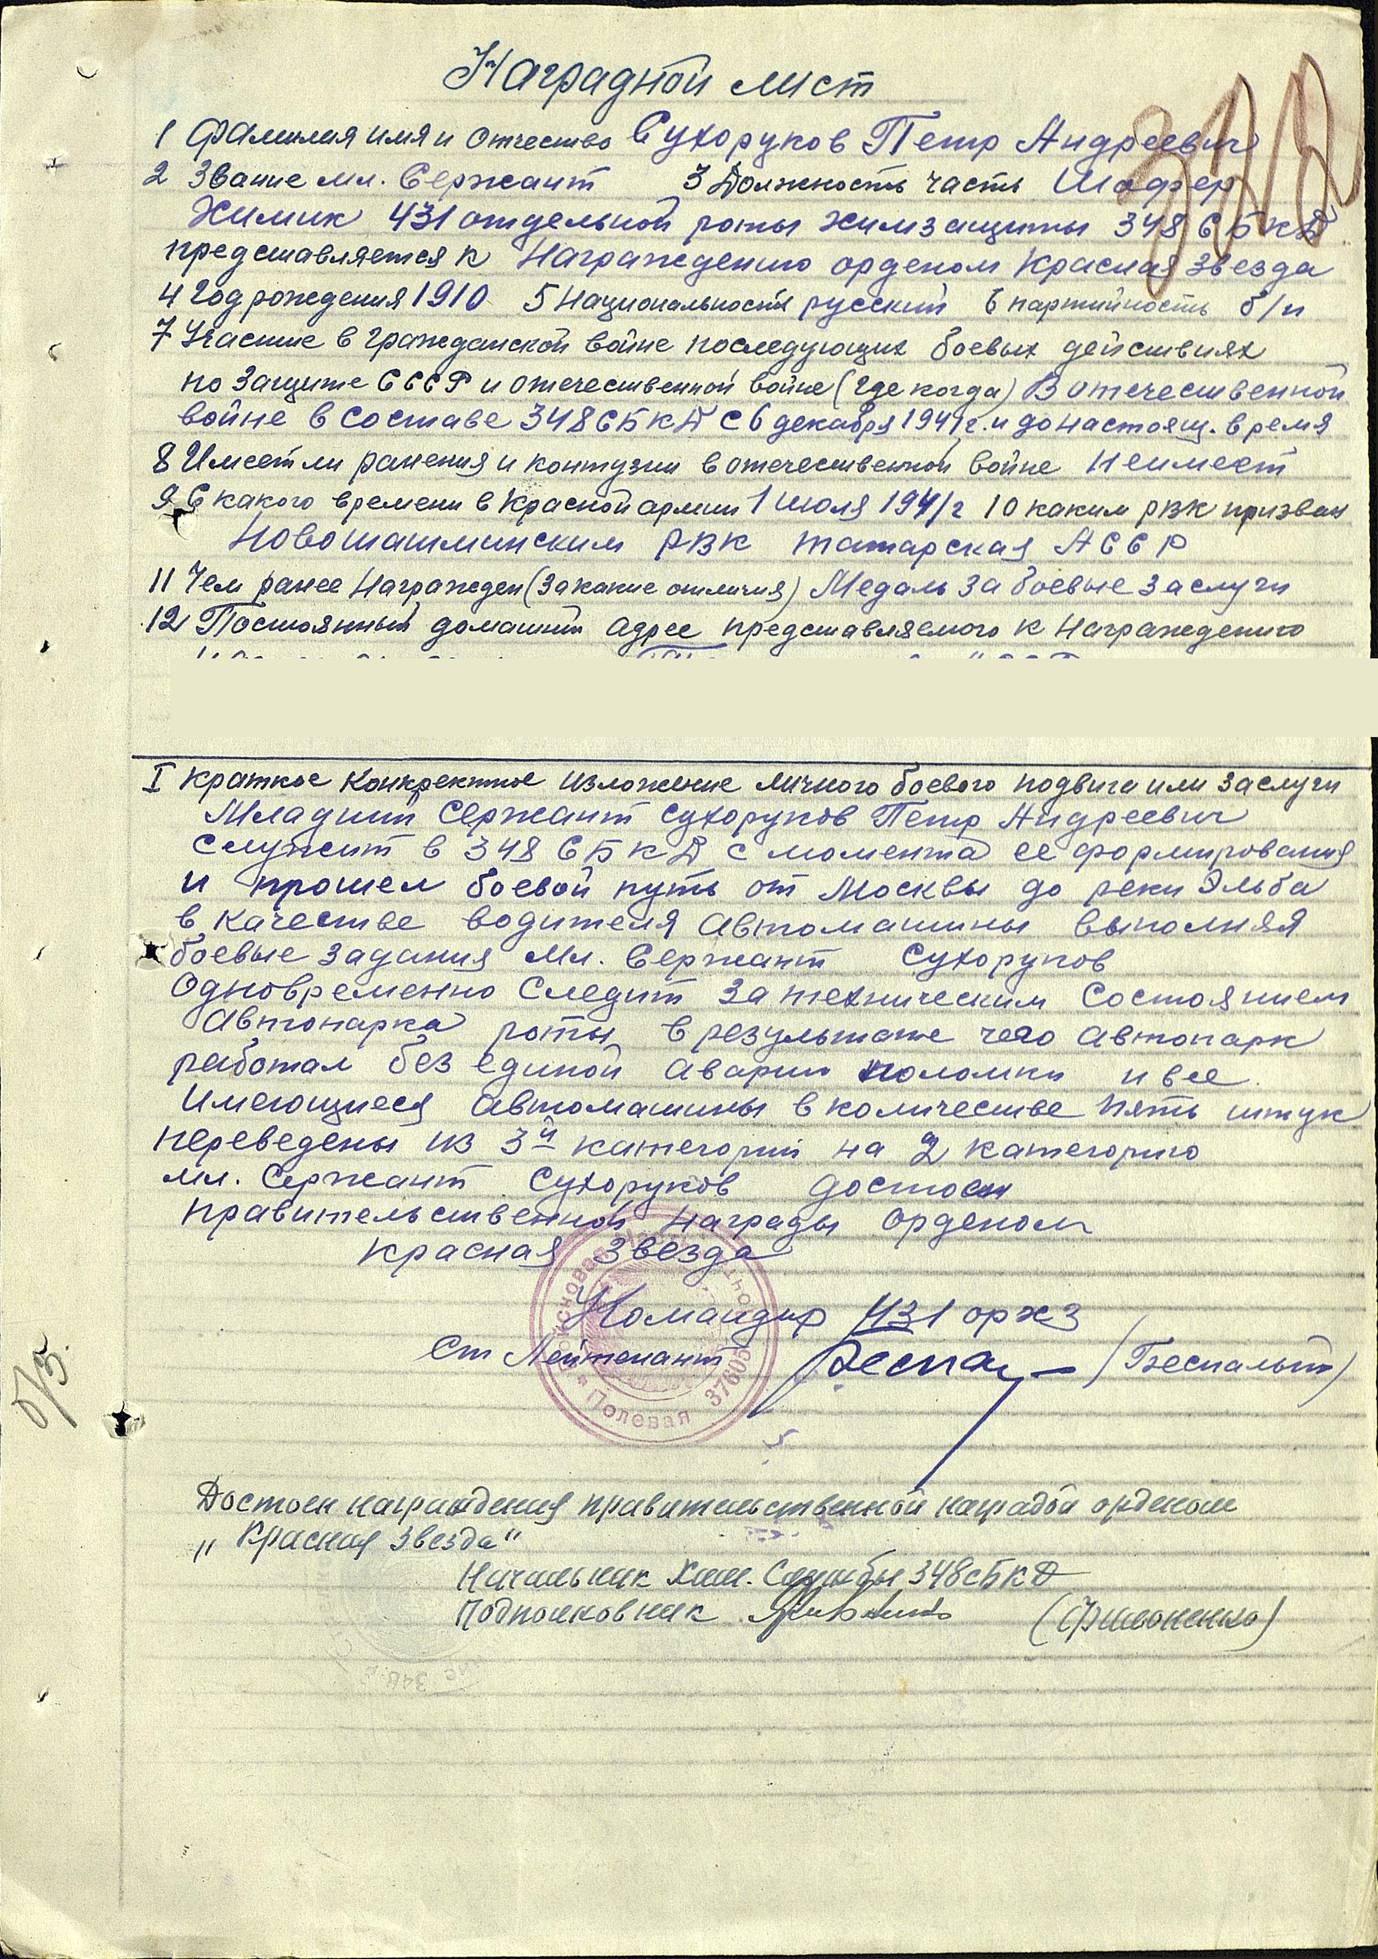 Наградной лист
1 Фамилия имя и отчество Сухоруков Петр Андреевич
2 Звание мл. Сержант 3 Должность часть Шофер
Химик 431 отдельной роты химзащиты 348 СБКД
представляется к Награждению орденом Красная Звезда
4 Год рождения 1910 5 Национальность русский 6 партийность б/п
7 Участие в гражданской войне последующих боевых действиях
по защите СССР и отечественной войне (где когда) В отечественной
войне в составе 348 СБКД с 6 декабря 1941г. и до настоящ. время
8 Имеет ли ранения и контузии в отечественной войне Неимеет
9 С какого времени в Красной армии 1 июля 1941г 10 каким РВК призван
Новошашминским РВК татарская АССР
11 Чем ранее Награжден (за какие отличия) Медаль За боевые заслуги
12 Постоянный домашний адрес представляемого к Награждению
I Краткое Конкретное изложение личного боевого подвига или заслуги
Младший Сержант Сухоруков Петр Андреевич
Служит в 348 СБКД с момента ее формирования
и прошел боевой путь от Москвы до реки Эльба
в качестве водителя автомашины выполняя
боевые задания Мл. Сержант Сухоруков
Одновременно Следит за техническим состоянием
автопарка роты в результате чего автопарк
работал без единой аварии поломки и все
имеющиеся автомашины в количестве пять штук
переведены из 3й категории на 2 категорию
мл. Сержант Сухоруков достоен
правительственной Награды орденом
Красная Звезда
Командир 431 орхз
Ст Лейтенант (Беспалый)
Полевая 37605
Достоен награждения правительственной наградой орденом
„Красная Звезда"
Начальник Хим. Службы 348сБКД
Подполковник (Филоненко)
318
б/5.